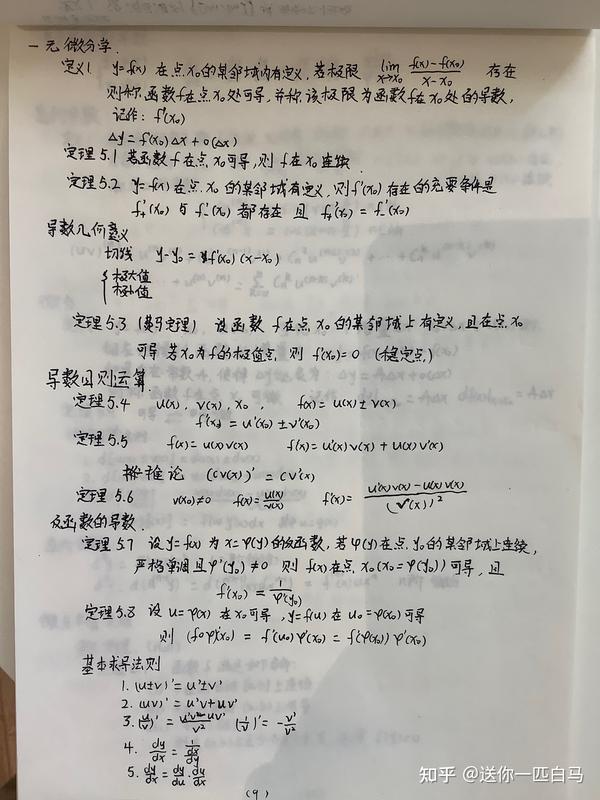 一元微分学.
定义1 y=f(x) 在点x₀的某邻域内有定义,若极限 lim_{x→x₀} (f(x)-f(x₀))/(x-x₀) 存在
则称函数f在点x₀处可导,并称该极限为函数f在x₀处的导数,
记作: f'(x₀)
Δy=f'(x₀)Δx+o(Δx)
定理5.1 若函数f在点x₀可导,则f在x₀连续.
定理5.2 y=f(x)在点x₀的某邻域有定义,则f'(x₀)存在的充要条件是
f₊'(x₀) 与 f₋'(x₀) 都存在 且 f₊'(x₀)=f₋'(x₀)
导数几何意义
切线 y-y₀=f'(x₀)(x-x₀)
极大值
极小值
定理5.3 (费马定理) 设函数f在点x₀的某邻域上有定义,且在点x₀
可导 若x₀为f的极值点,则 f'(x₀)=0 (稳定点)
导数四则运算.
定理5.4 u(x), v(x), x₀, f(x)=u(x)±v(x)
f'(x₀)=u'(x₀)±v'(x₀)
定理5.5 f(x)=u(x)v(x) f'(x)=u'(x)v(x)+u(x)v'(x)
推论 (cv(x))'=cv'(x)
定理5.6 v(x₀)≠0 f(x)=u(x)/v(x) f'(x)=(u'(x)v(x)-u(x)v'(x))/(v(x))²
反函数的导数.
定理5.7 设y=f(x)为x=φ(y)的反函数,若φ(y)在点y₀的某邻域上连续,
严格单调且φ'(y₀)≠0 则f(x)在点x₀(x₀=φ(y₀))可导,且
f'(x₀)=1/φ'(y₀)
定理5.8 设u=φ(x)在x₀可导,y=f(u)在u₀=φ(x₀)可导
则 (f∘φ)'(x₀)=f'(u₀)φ'(x₀)=f'(φ(x₀))φ'(x₀)
基本求导法则
1. (u±v)'=u'±v'
2. (uv)'=u'v+uv'
3. (u/v)'=(u'v-uv')/v² (1/v)'=-v'/v²
4. dy/dx=1/(dx/dy)
5. dy/dx=dy/du·du/dx
(9)
知乎 @送你一匹白马